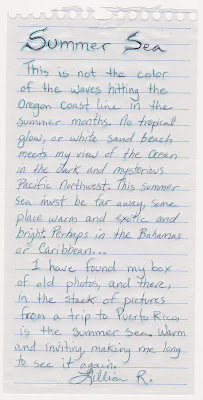 Summer Sea
This is not the color
of the waves hitting the
Oregon coast line in the
summer months. No tropical
glow, or white sand beach
meets my view of the Ocean
in the dark and mysterious
Pacific Northwest. This summer
sea must be far away, some
place warm and exotic and
bright. Perhaps in the Bahamas
or Caribbean...
I have found my box
of old photos, and there,
in the stack of pictures
from a trip to Puerto Rico,
is the summer sea. Warm
and inviting, making me long
to see it again.
Lillian R.